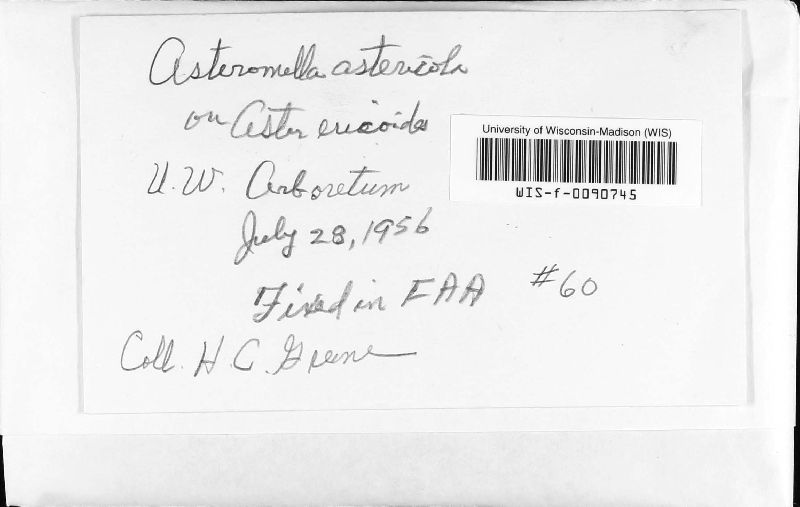 Asteromella astericola
on Aster ericoides
University of Wisconsin-Madison (WIS)
WIS-f-0090745
U.W. Arboretum
July 28, 1956
Fixed in FAA #60
Coll. H.C. Greene